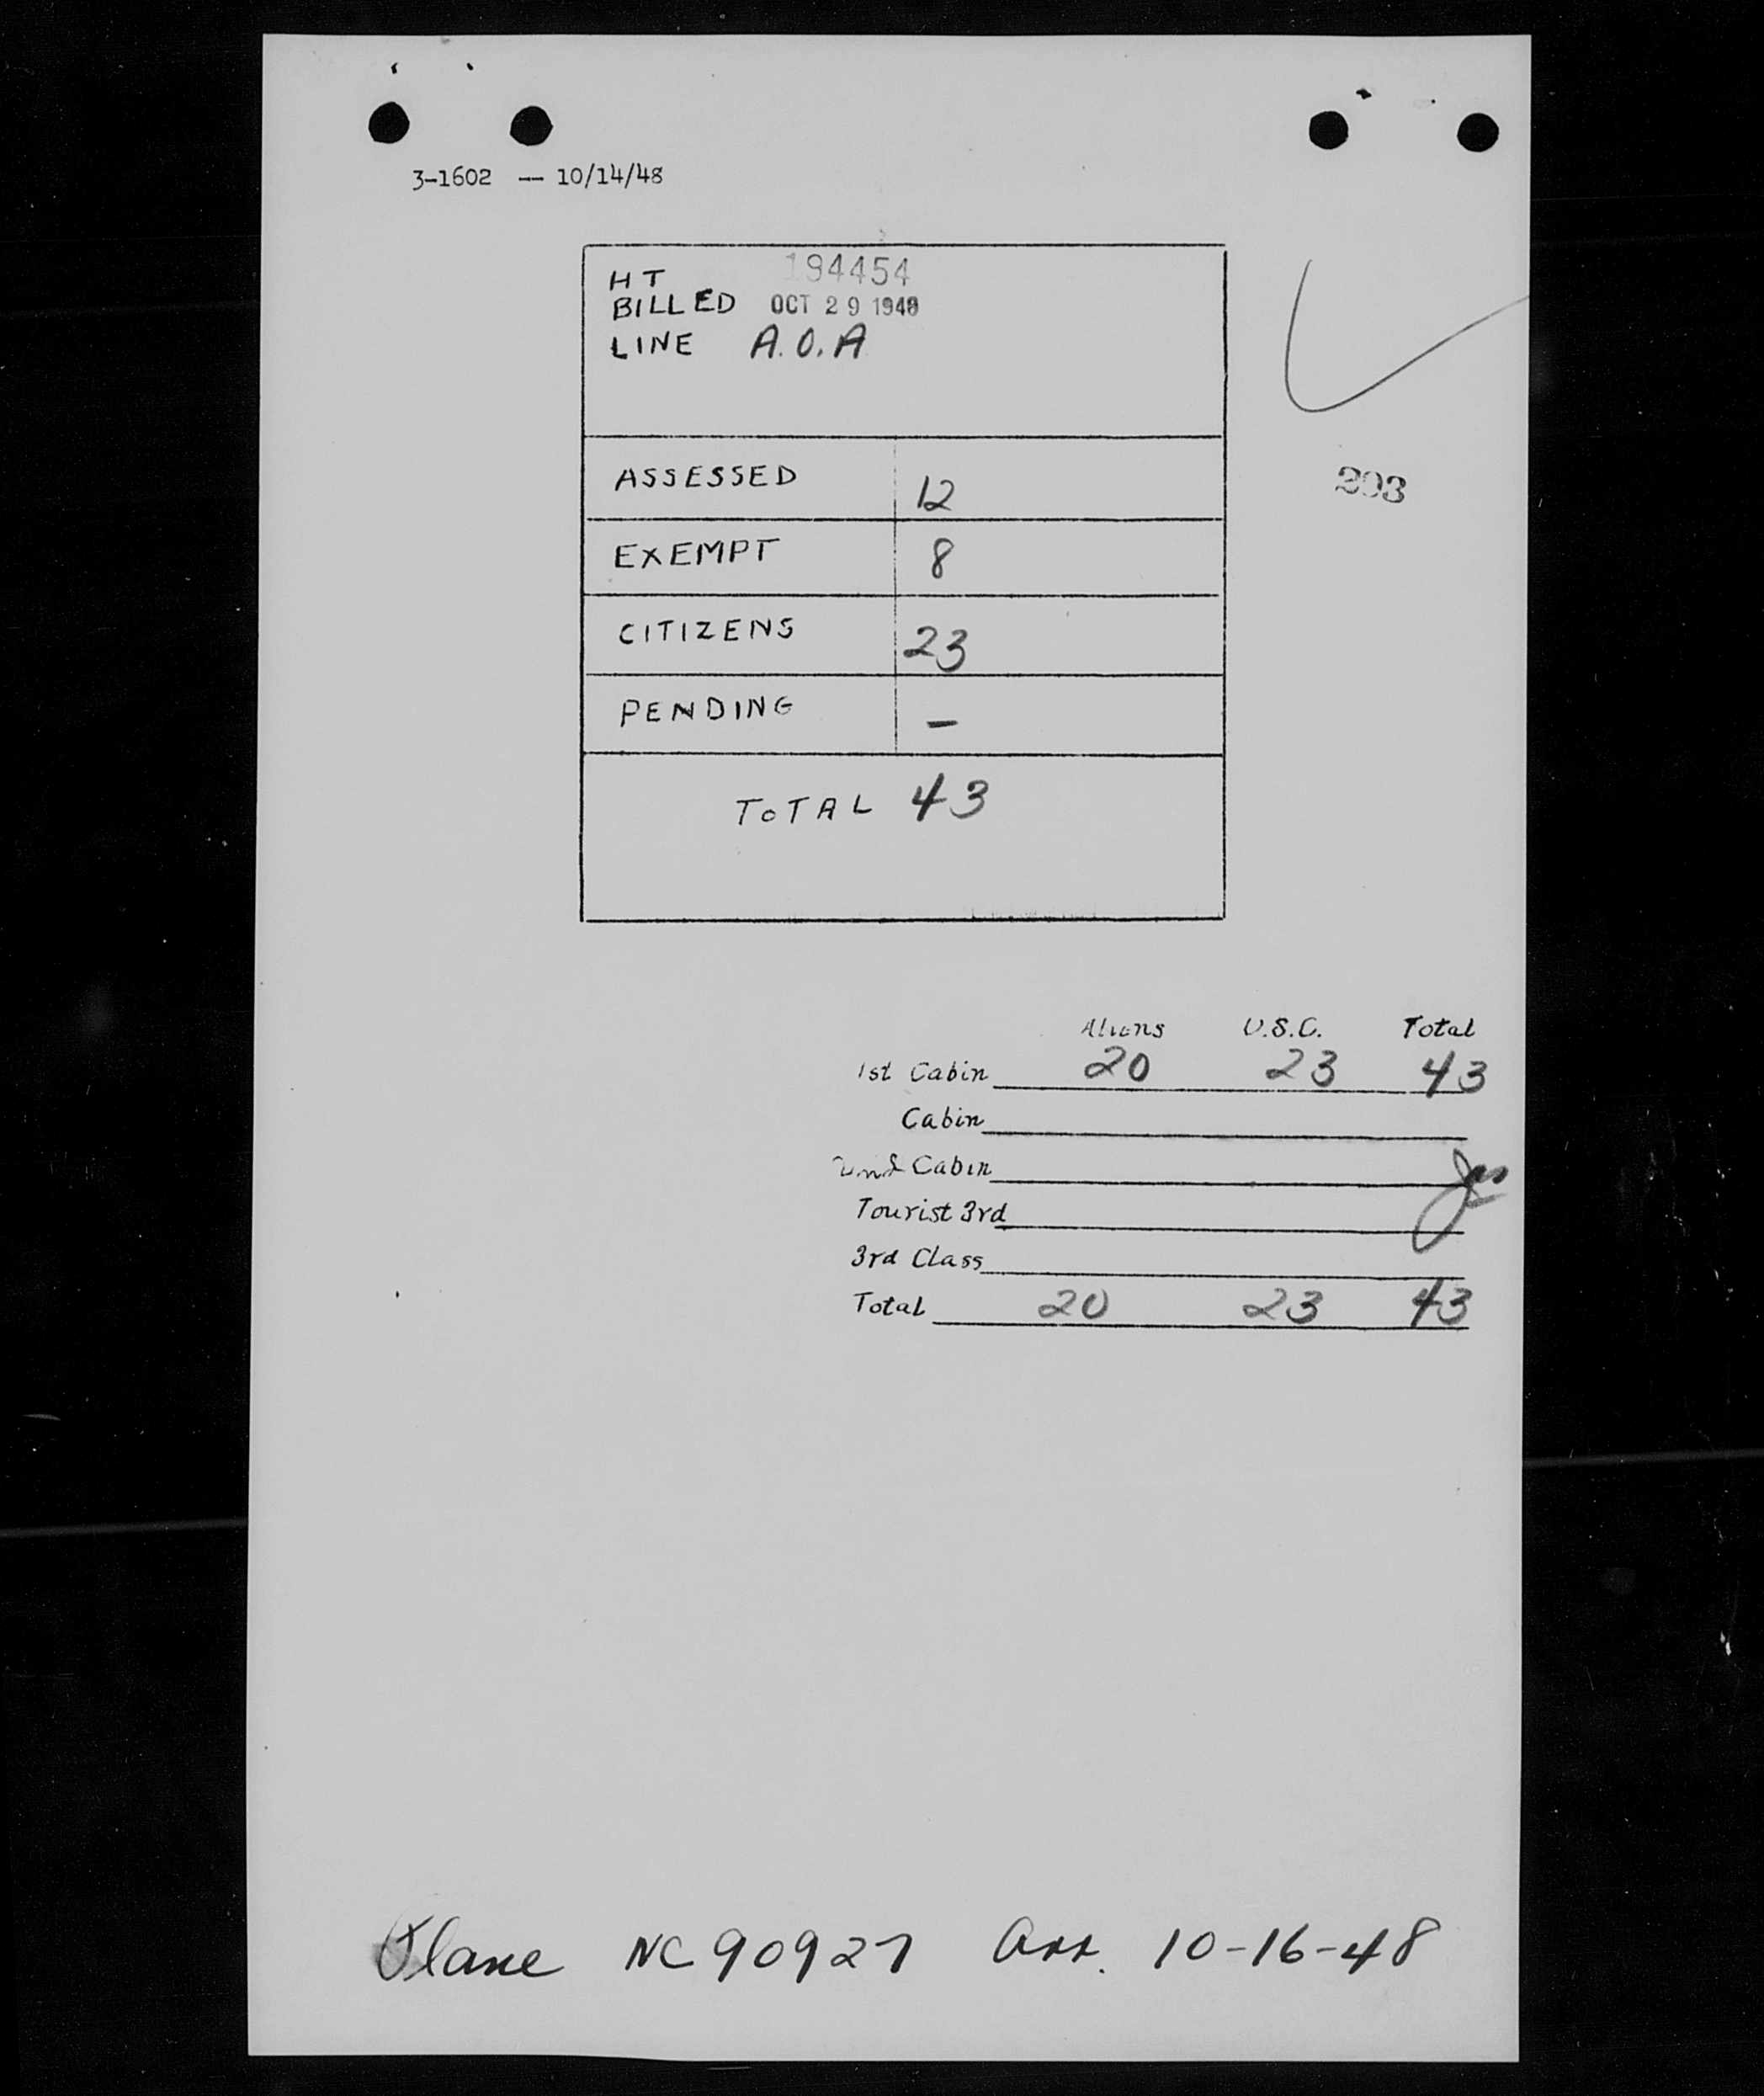 3-1602 -- 10/14/48
HT 194454
BILLED OCT 29 1948
LINE A.O.A
203
ASSESSED 12
EXEMPT 8
CITIZENS 23
PENDING -
TOTAL 43
Aliens U.S.C. Total
1st Cabin 20 23 43
Cabin
2nd Cabin
Tourist 3rd
3rd Class
Total 20 23 43
Plane NC 90927 Arr. 10-16-48